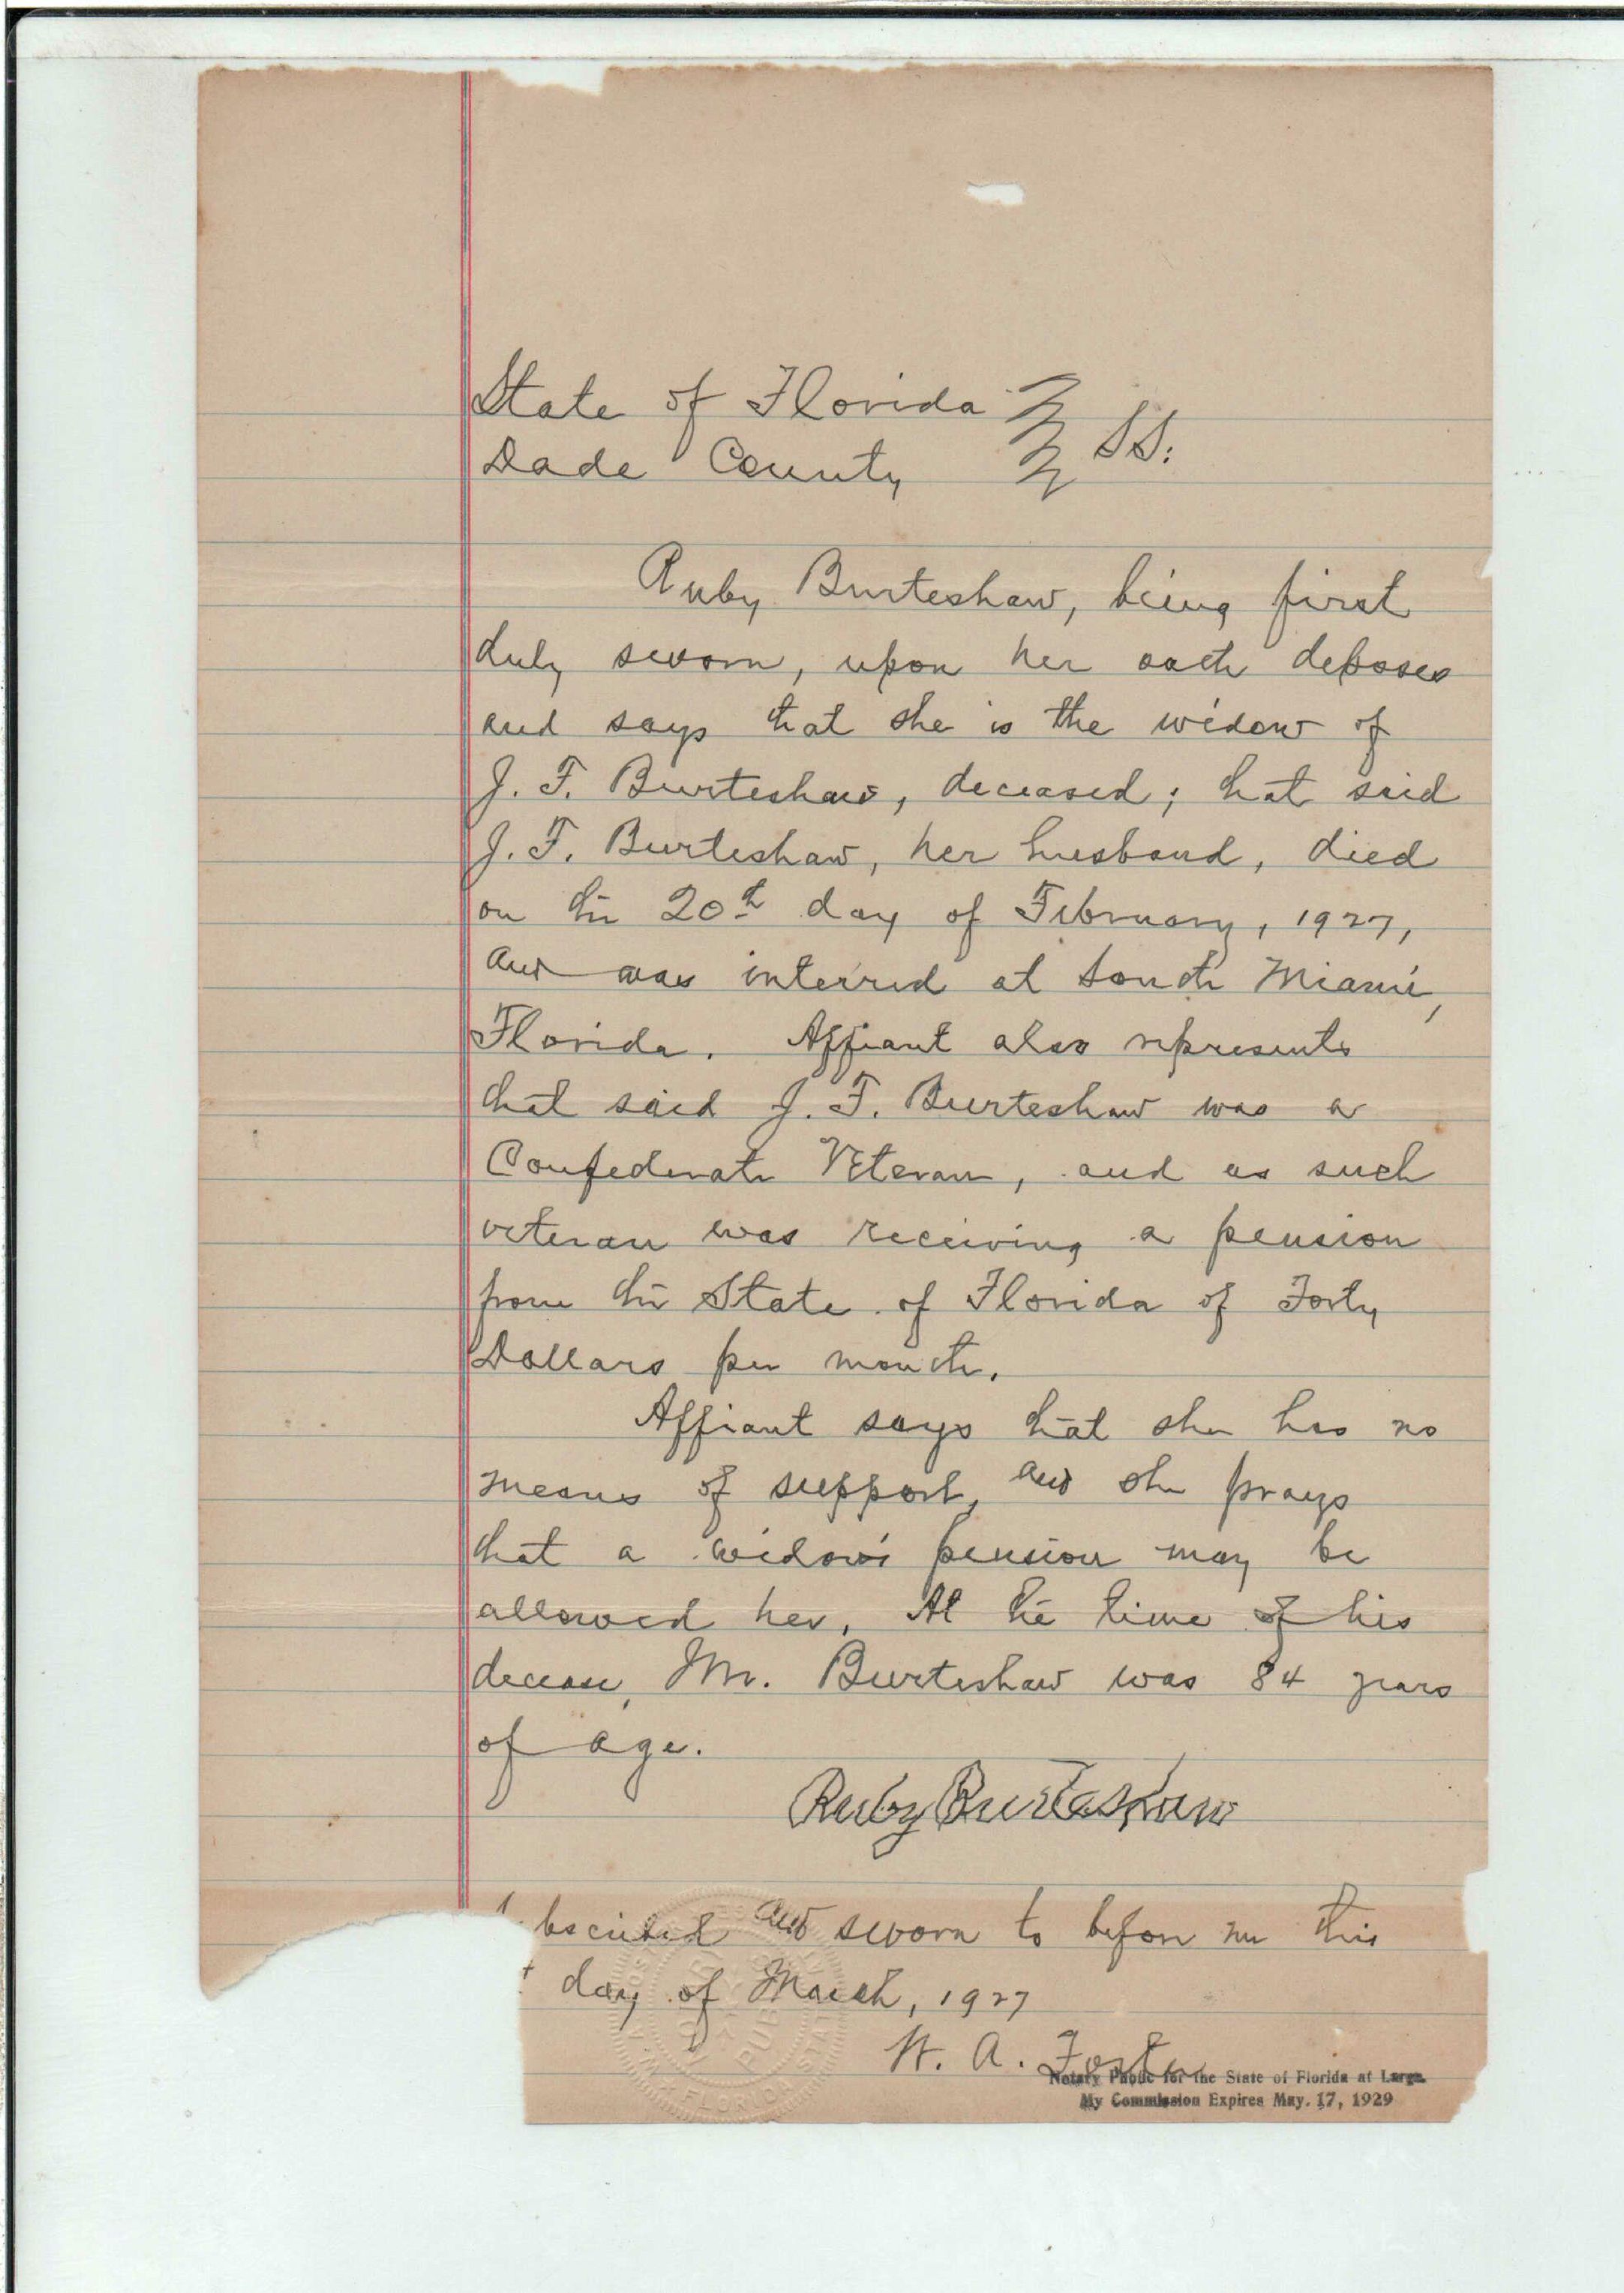 State of Florida
SS:
Dade County
Ruby Burteshaw, being first
duly sworn, upon her oath deposes
and says that she is the widow of
J. F. Burteshaw, deceased; that said
J. F. Burteshaw, her husband, died
on the 20th day of February, 1927,
and was interred at South Miami,
Florida. Affiant also represents
that said J. F. Burteshaw was a
Confederate Veteran, and as such
veteran was receiving a pension
from the State of Florida of Forty
Dollars per month.
Affiant says that she has no
means of support, and she prays
that a widow's pension may be
allowed her. At the time of his
decease, Mr. Burteshaw was 84 years
of age.
Ruby Burteshaw
bscribed and sworn to before me this
t day of March, 1927
W. A. Foster
Notary Public for the State of Florida at Large.
My Commission Expires May. 17, 1929
NOTARY PUBLIC
FLORIDA STATE